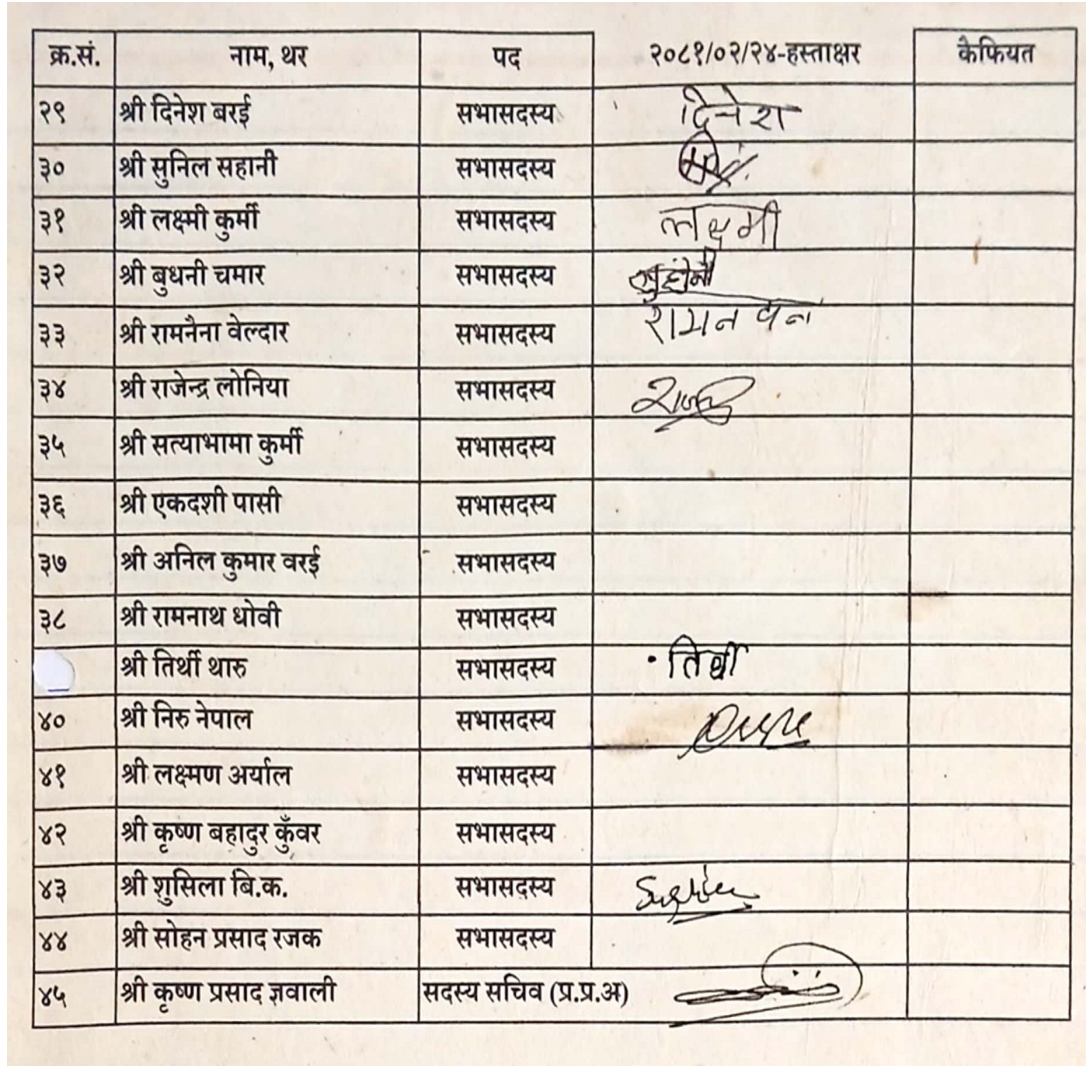 क्र.सं. नाम, थर पद २०८१/०२/२४-हस्ताक्षर कैफियत
२९ श्री दिनेश बरई सभासदस्य दिनेश
३० श्री सुनिल सहानी सभासदस्य
३१ श्री लक्ष्मी कुर्मी सभासदस्य लक्ष्मी
३२ श्री बुधनी चमार सभासदस्य
३३ श्री रामनैना वेल्दार सभासदस्य
३४ श्री राजेन्द्र लोनिया सभासदस्य
३५ श्री सत्याभामा कुर्मी सभासदस्य
३६ श्री एकदशी पासी सभासदस्य
३७ श्री अनिल कुमार वरई सभासदस्य
३८ श्री रामनाथ धोवी सभासदस्य
श्री तिर्थी थारु सभासदस्य तिर्थी
४० श्री निरु नेपाल सभासदस्य
४१ श्री लक्ष्मण अर्याल सभासदस्य
४२ श्री कृष्ण बहादुर कुँवर सभासदस्य
४३ श्री शुसिला बि.क. सभासदस्य
४४ श्री सोहन प्रसाद रजक सभासदस्य
४५ श्री कृष्ण प्रसाद ज्ञवाली सदस्य सचिव (प्र.प्र.अ)